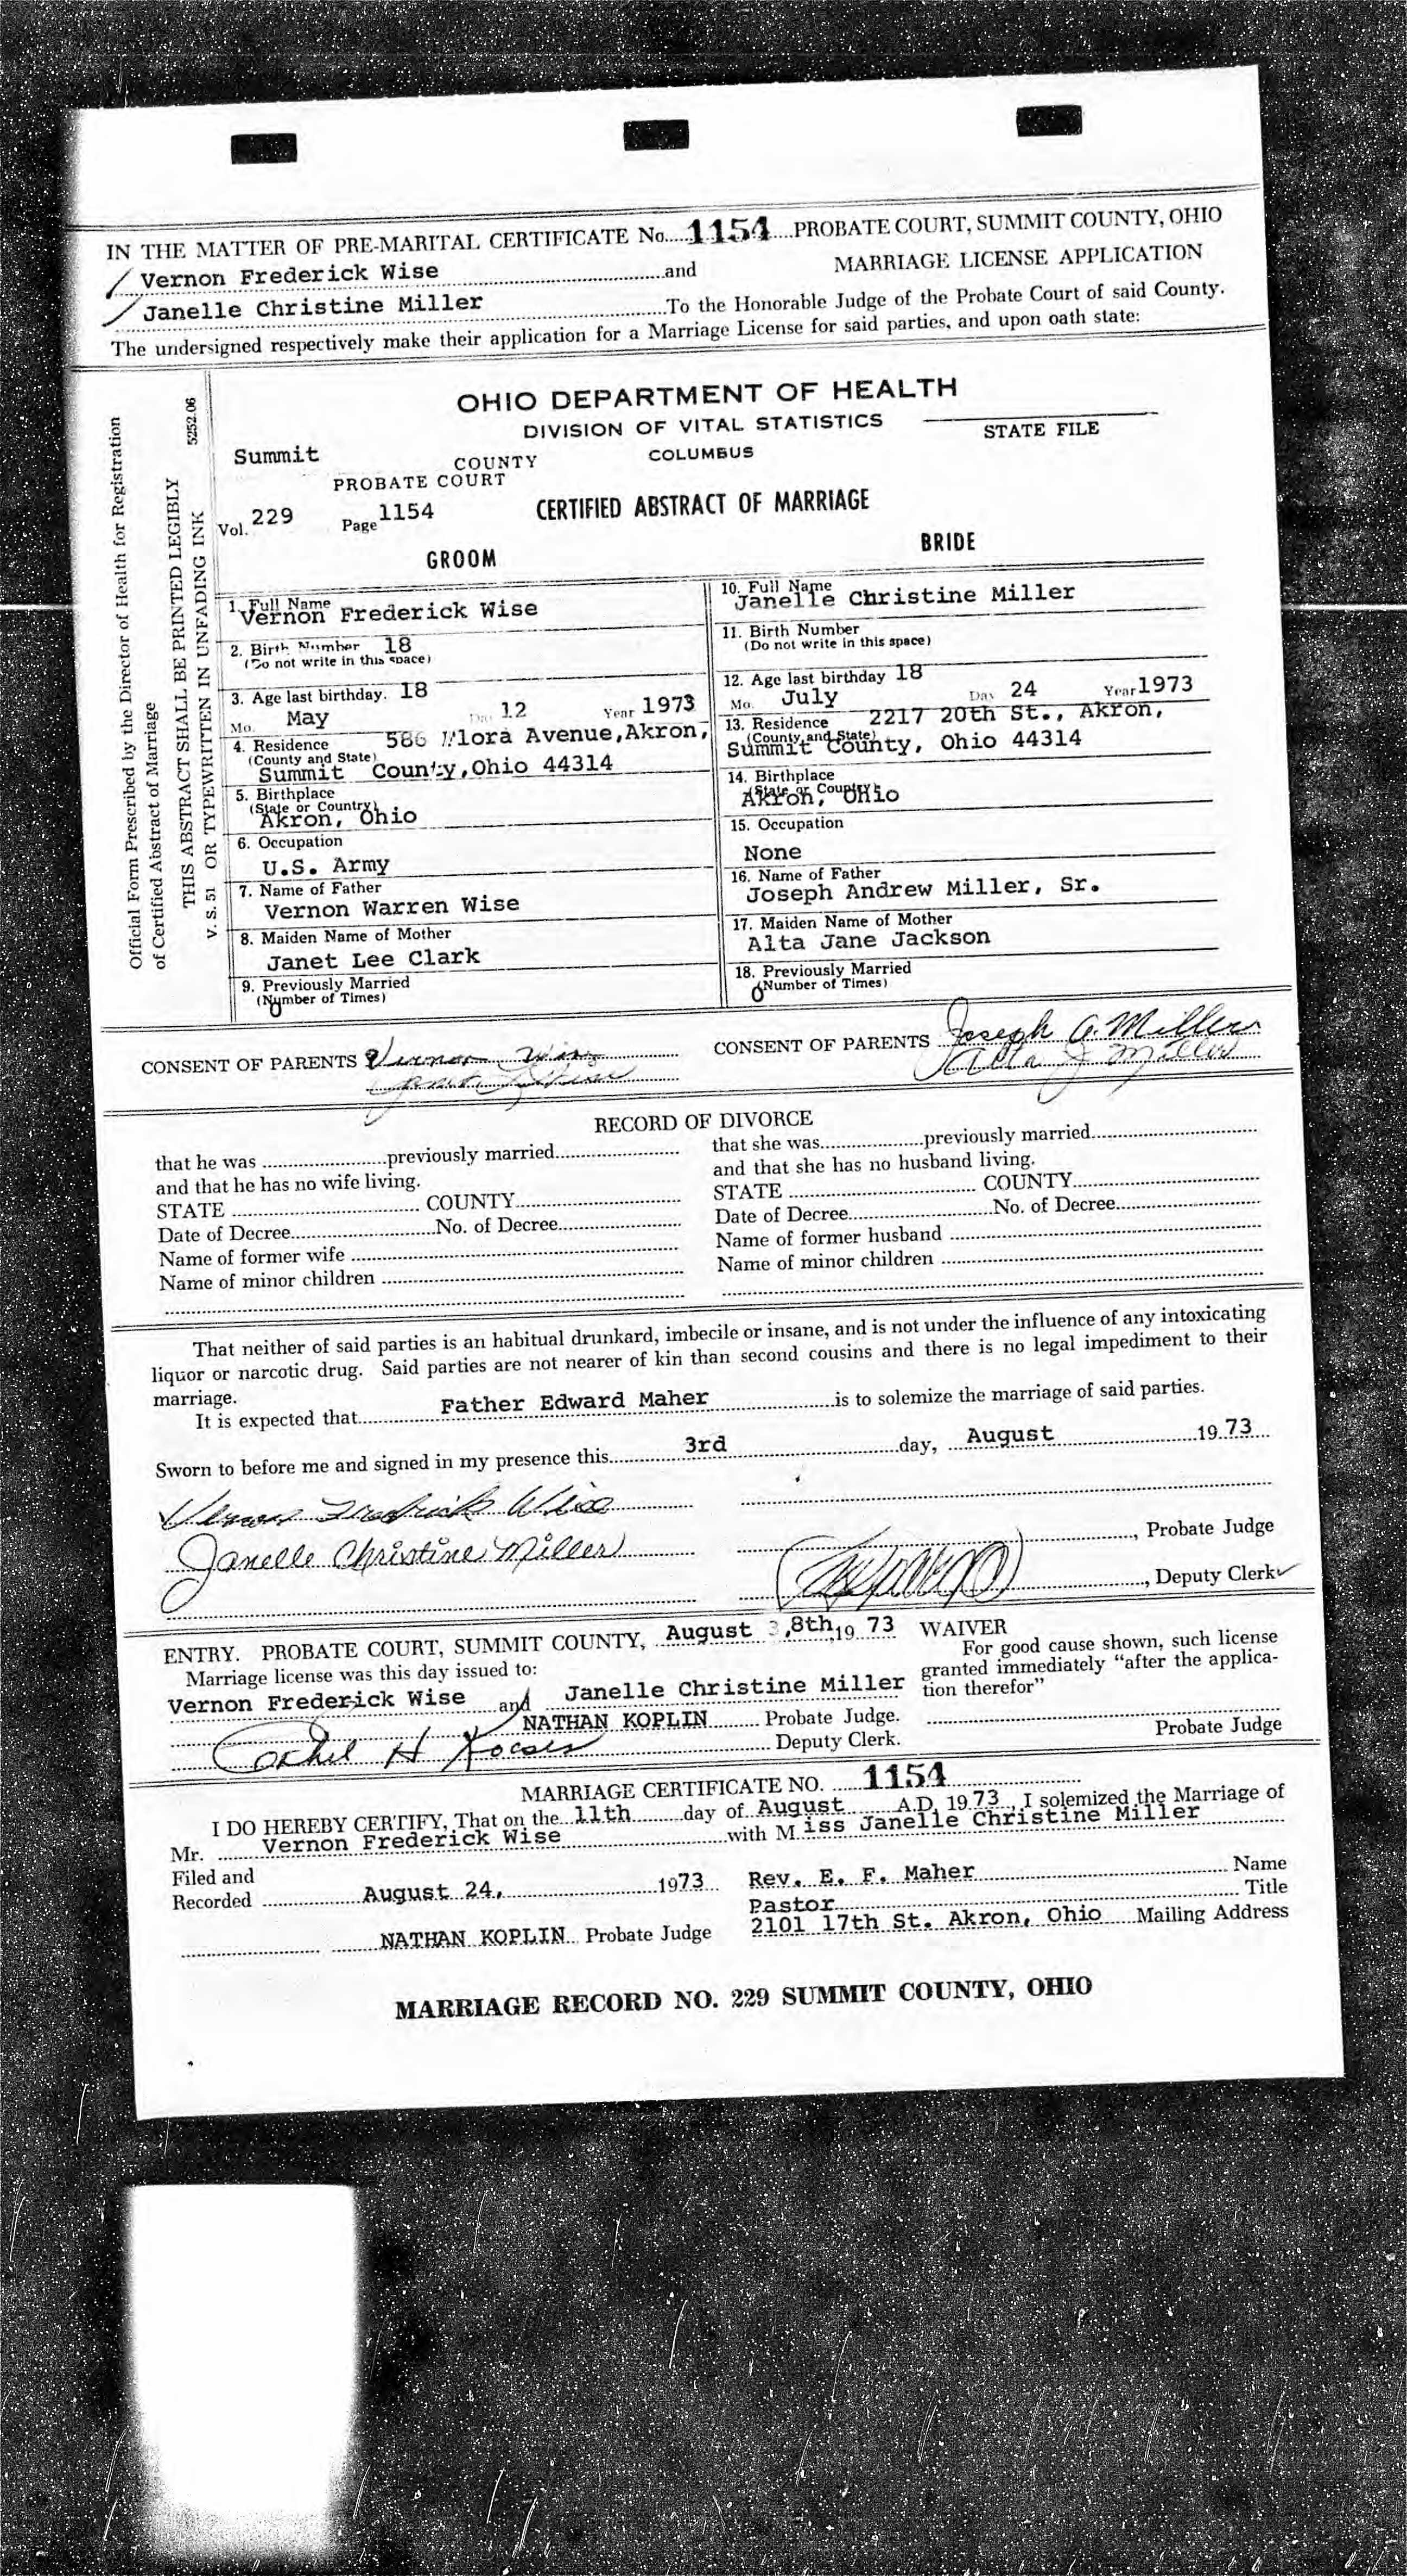 IN THE MATTER OF PRE-MARITAL CERTIFICATE No. 1154 PROBATE COURT, SUMMIT COUNTY, OHIO
Vernon Frederick Wise and MARRIAGE LICENSE APPLICATION
Janelle Christine Miller To the Honorable Judge of the Probate Court of said County.
The undersigned respectively make their application for a Marriage License for said parties, and upon oath state:
Official Form Prescribed by the Director of Health for Registration
of Certified Abstract of Marriage
THIS ABSTRACT SHALL BE PRINTED LEGIBLY
V. S. 51 OR TYPEWRITTEN IN UNFADING INK 5252.06
OHIO DEPARTMENT OF HEALTH
DIVISION OF VITAL STATISTICS STATE FILE
Summit COUNTY COLUMBUS
PROBATE COURT
Vol. 229 Page 1154 CERTIFIED ABSTRACT OF MARRIAGE
GROOM
1. Full Name
Vernon Frederick Wise
2. Birth Number 18
(Do not write in this space)
3. Age last birthday. 18
Mo. May Day 12 Year 1973
4. Residence 586 Flora Avenue,Akron,
(County and State)
Summit County,Ohio 44314
5. Birthplace
(State or Country)
Akron, Ohio
6. Occupation
U.S. Army
7. Name of Father
Vernon Warren Wise
8. Maiden Name of Mother
Janet Lee Clark
9. Previously Married
(Number of Times)
0
BRIDE
10. Full Name
Janelle Christine Miller
11. Birth Number
(Do not write in this space)
12. Age last birthday 18
Mo. July Day 24 Year 1973
13. Residence 2217 20th St., Akron,
(County and State)
Summit County, Ohio 44314
14. Birthplace
(State or Country)
Akron, Ohio
15. Occupation
None
16. Name of Father
Joseph Andrew Miller, Sr.
17. Maiden Name of Mother
Alta Jane Jackson
18. Previously Married
(Number of Times)
0
CONSENT OF PARENTS Vernon Wise
CONSENT OF PARENTS Joseph A. Miller
Alta J Miller
RECORD OF DIVORCE
that he was previously married
and that he has no wife living.
STATE COUNTY
Date of Decree No. of Decree
Name of former wife
Name of minor children
that she was previously married
and that she has no husband living.
STATE COUNTY
Date of Decree No. of Decree
Name of former husband
Name of minor children
That neither of said parties is an habitual drunkard, imbecile or insane, and is not under the influence of any intoxicating
liquor or narcotic drug. Said parties are not nearer of kin than second cousins and there is no legal impediment to their
marriage.
It is expected that Father Edward Maher is to solemize the marriage of said parties.
Sworn to before me and signed in my presence this 3rd day, August 19 73
Vernon Fredrick Wise
Janelle Christine Miller , Probate Judge
, Deputy Clerk
ENTRY. PROBATE COURT, SUMMIT COUNTY, August 3,8th 19 73
Marriage license was this day issued to:
Vernon Frederick Wise and Janelle Christine Miller
NATHAN KOPLIN Probate Judge.
Deputy Clerk.
WAIVER
For good cause shown, such license
granted immediately "after the applica-
tion therefor"
Probate Judge
MARRIAGE CERTIFICATE NO. 1154
I DO HEREBY CERTIFY, That on the 11th day of August A.D. 19 73, I solemized the Marriage of
Mr. Vernon Frederick Wise with Miss Janelle Christine Miller
Filed and
Recorded August 24, 1973 Rev. E. F. Maher Name
Pastor Title
NATHAN KOPLIN Probate Judge 2101 17th St. Akron, Ohio Mailing Address
MARRIAGE RECORD NO. 229 SUMMIT COUNTY, OHIO